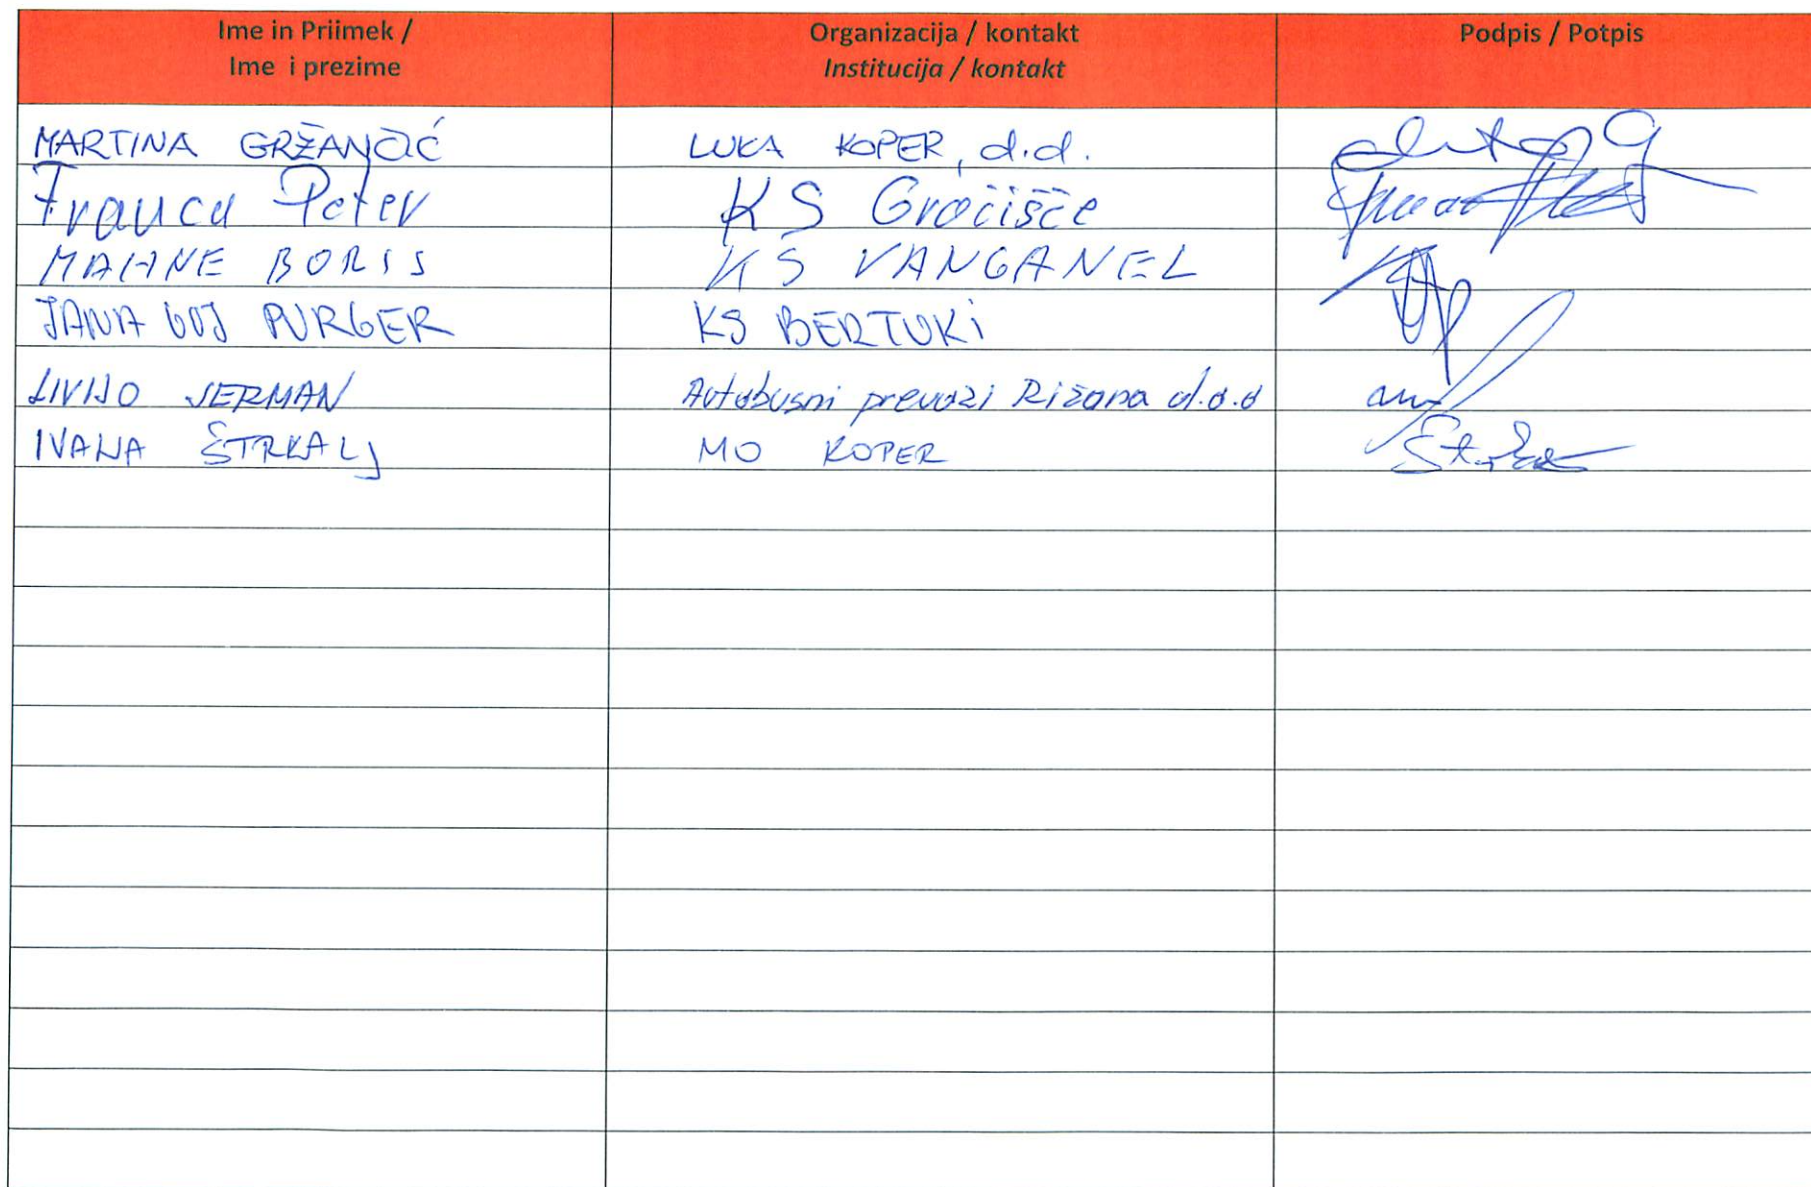 Ime in Priimek /
Ime i prezime
Organizacija / kontakt
Institucija / kontakt
Podpis / Potpis
MARTINA GRŽANČIĆ LUKA KOPER, d.d.
Franca Peter KS Gračišče
MAHNE BORIS KS VANGANEL
JANA GOJ PURGER KS BERTOKI
LIVIJO JERMAN Avtobusni prevozi Rižana d.o.o
IVANA ŠTRKALJ MO KOPER